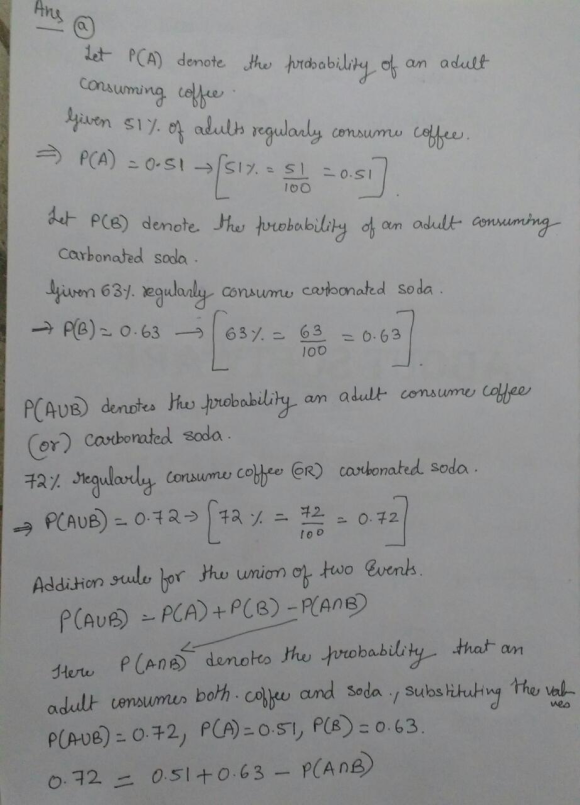 Ans (a)
Let P(A) denote the probability of an adult
consuming coffee.
Given 51% of adults regularly consume coffee.
⇒ P(A) = 0.51 → [51% = 51/100 = 0.51].
Let P(B) denote the probability of an adult consuming
carbonated soda.
Given 63% regularly consume carbonated soda.
→ P(B) = 0.63 → [63% = 63/100 = 0.63].
P(A∪B) denotes the probability an adult consume coffee
(or) carbonated soda.
72% regularly consume coffee (OR) carbonated soda.
⇒ P(A∪B) = 0.72 → [72% = 72/100 = 0.72]
Addition rule for the union of two Events.
P(A∪B) = P(A) + P(B) - P(A∩B)
Here P(A∩B) denotes the probability that an
adult consumes both coffee and soda., substituting the values
P(A∪B) = 0.72, P(A) = 0.51, P(B) = 0.63.
0.72 = 0.51 + 0.63 - P(A∩B)